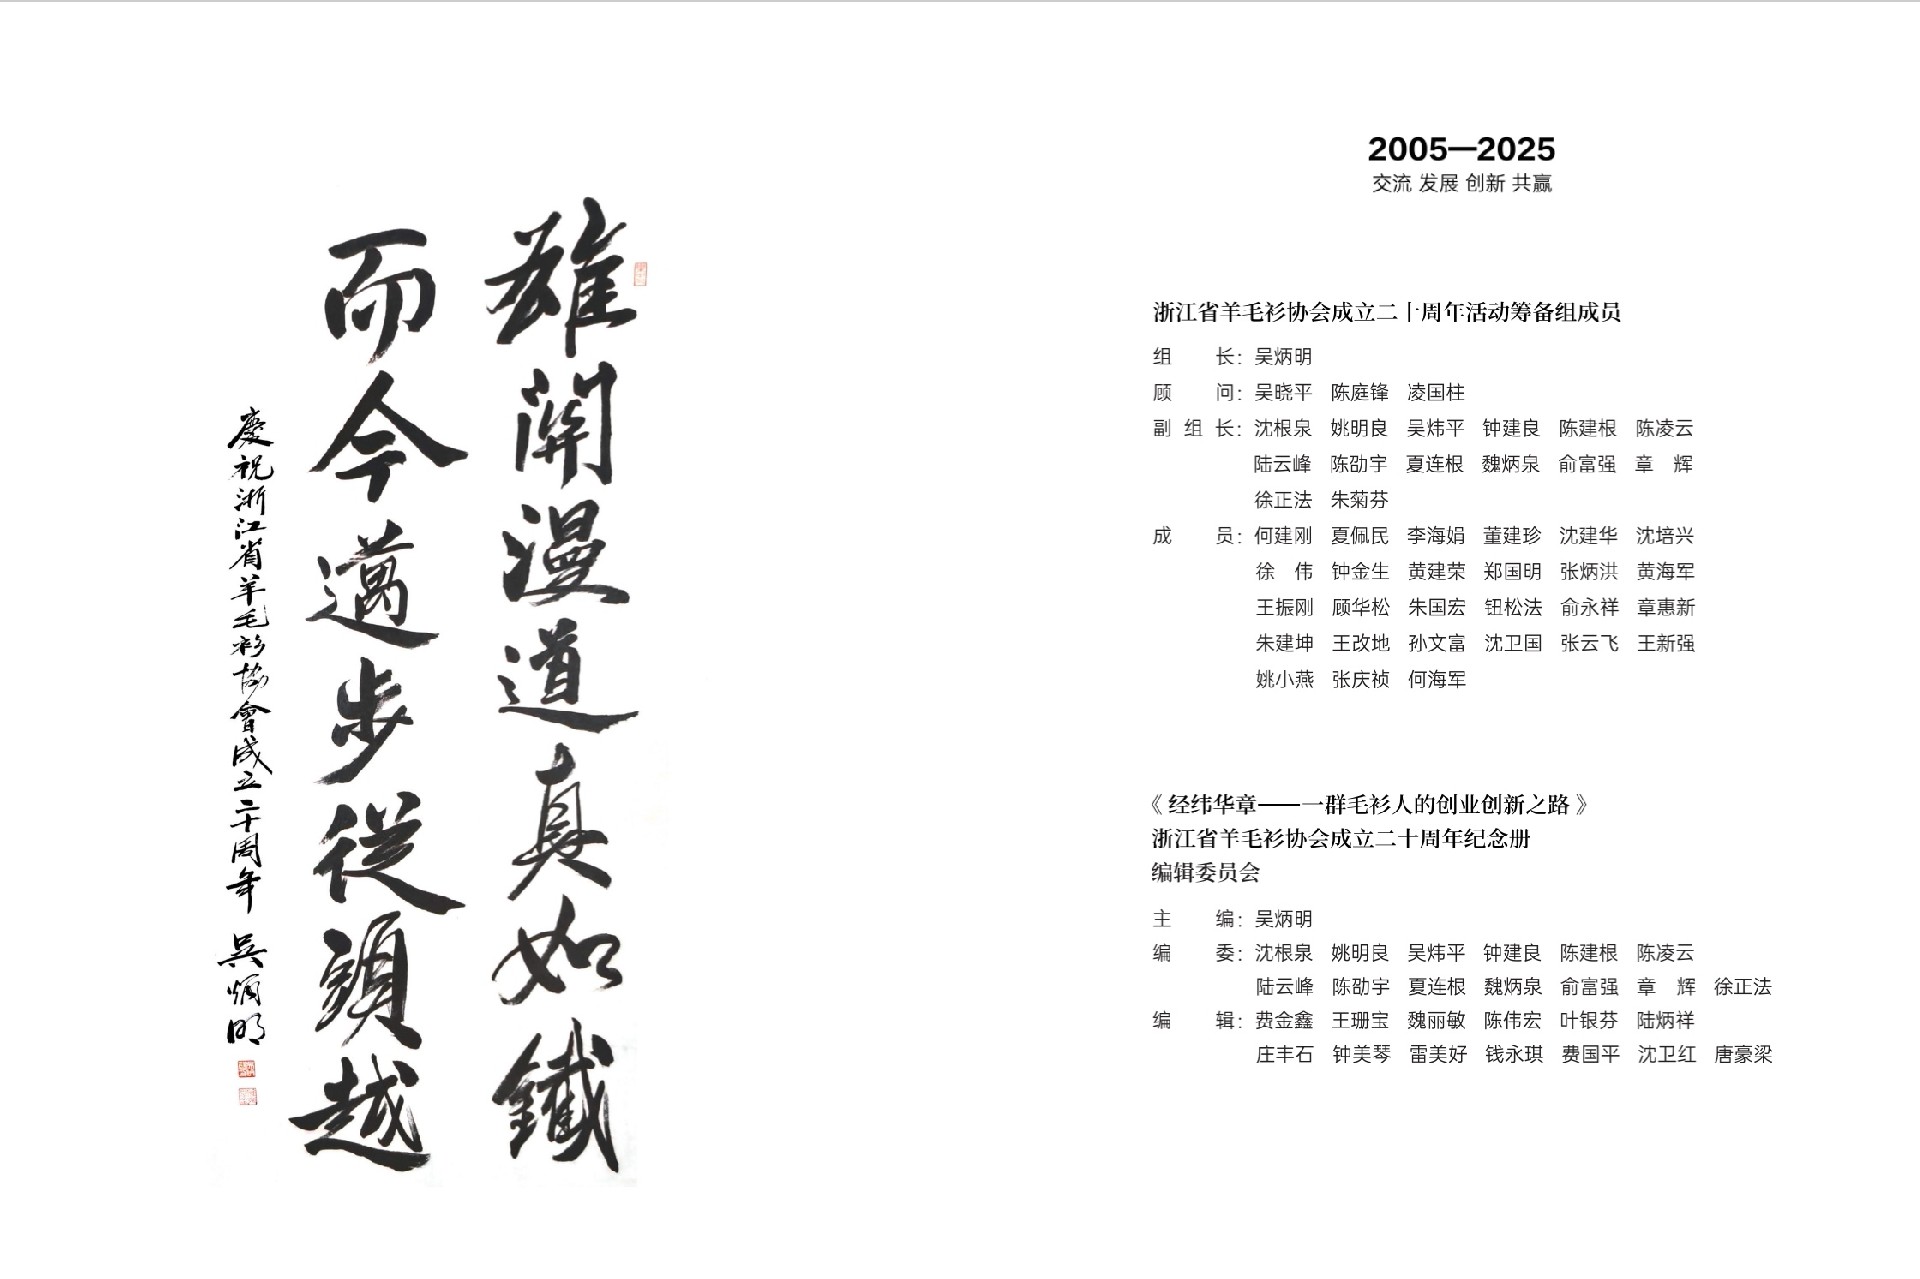 雄關漫道真如鐵
而今邁步從頭越
慶祝浙江省羊毛衫協會成立二十周年 吳炳明
2005—2025
交流 发展 创新 共赢
浙江省羊毛衫协会成立二十周年活动筹备组成员
组 长：吴炳明
顾 问：吴晓平 陈庭锋 凌国柱
副 组 长：沈根泉 姚明良 吴炜平 钟建良 陈建根 陈凌云
陆云峰 陈劭宇 夏连根 魏炳泉 俞富强 章 辉
徐正法 朱菊芬
成 员：何建刚 夏佩民 李海娟 董建珍 沈建华 沈培兴
徐 伟 钟金生 黄建荣 郑国明 张炳洪 黄海军
王振刚 顾华松 朱国宏 钮松法 俞永祥 章惠新
朱建坤 王改地 孙文富 沈卫国 张云飞 王新强
姚小燕 张庆祯 何海军
《 经纬华章——一群毛衫人的创业创新之路 》
浙江省羊毛衫协会成立二十周年纪念册
编辑委员会
主 编：吴炳明
编 委：沈根泉 姚明良 吴炜平 钟建良 陈建根 陈凌云
陆云峰 陈劭宇 夏连根 魏炳泉 俞富强 章 辉 徐正法
编 辑：费金鑫 王珊宝 魏丽敏 陈伟宏 叶银芬 陆炳祥
庄丰石 钟美琴 雷美好 钱永琪 费国平 沈卫红 唐豪梁